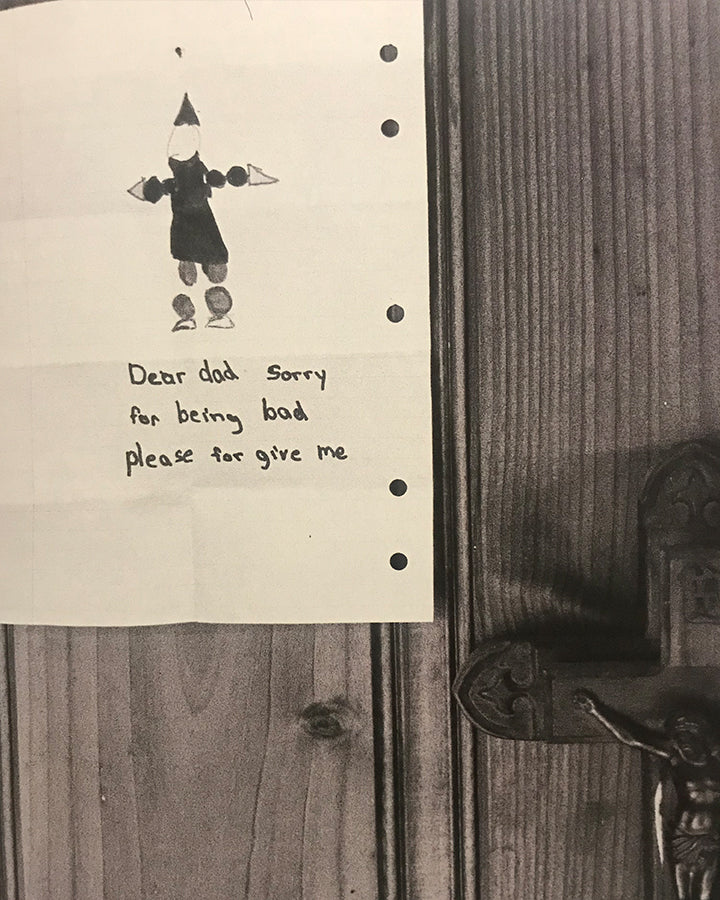 Dear dad Sorry
for being bad
please for give me